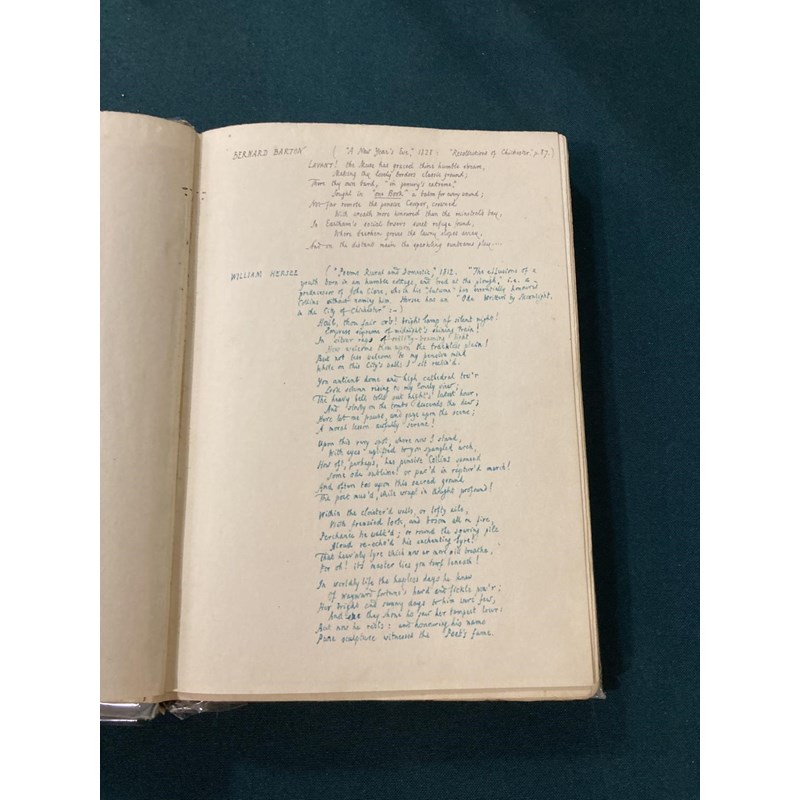 "BERNARD BARTON" ( "A New Year's Eve," 1828: "Recollections of Chichester," p.87.)
LAVANT! the Muse has graced thine humble stream,
Making thy lonely borders classic ground;
There thy own bard, "in poverty's extreme,"
Sought in "one Book" a balm for every wound;
Not far remote the pensive Cowper, crowned
With wreath more honoured than the minstrel's bay,
In Eastham's social bowers sweet refuge found,
Where beechen groves the lawny slopes array,
And on the distant main the sparkling sunbeams play...
WILLIAM HERSEE ( "Poems Rural and Domestic," 1812. "The effusions of a
youth born in an humble cottage, and bred at the plough," i.e. a
predecessor of John Clare, while his "Autumn" has essentially honoured
Collins without naming him. Hersee has an "Ode Written by Moonlight,
in the City of Chichester" :-)
Hail, thou fair orb! bright lamp of silent night!
Empress supreme of midnight's shining train!
In silver rays of softly-beaming light
How welcome thou upon the trackless plain!
But not less welcome to my pensive mind
While on this City's walls I sit reclin'd.
You antient dome and high cathedral tow'r
Look solemn rising to my lonely view;
The heavy bell tells out night's latest hour,
And slowly on the tombs descends the dew;
Here let me pause, and gaze upon the scene;
A moral lesson awfully serene!
Upon this very spot, where now I stand,
With eyes uplifted to yon spangled arch,
How oft, perhaps, has pensive Collins scann'd
Some theme sublime! or pac'd in raptur'd march!
And often too upon this sacred ground
The poet mus'd, while wrapt in thought profound!
Within the cloister'd walls, or lofty aile,
With frenzied look, and bosom all on fire,
Perchance he walk'd; or round the soaring pile
Aloud re-echo'd his enchanting lyre!
That heav'nly lyre which now no more old breathe,
For oh! its master lies yon turf beneath!
In worldly life the hapless days he knew
Of wayward fortune's hard and fickle pow'r;
Her bright and sunny days to him were few,
And when they shone he saw her tempest lower:
But now he rests: and honouring his name
Pure sculpture witnesses the Poet's fame